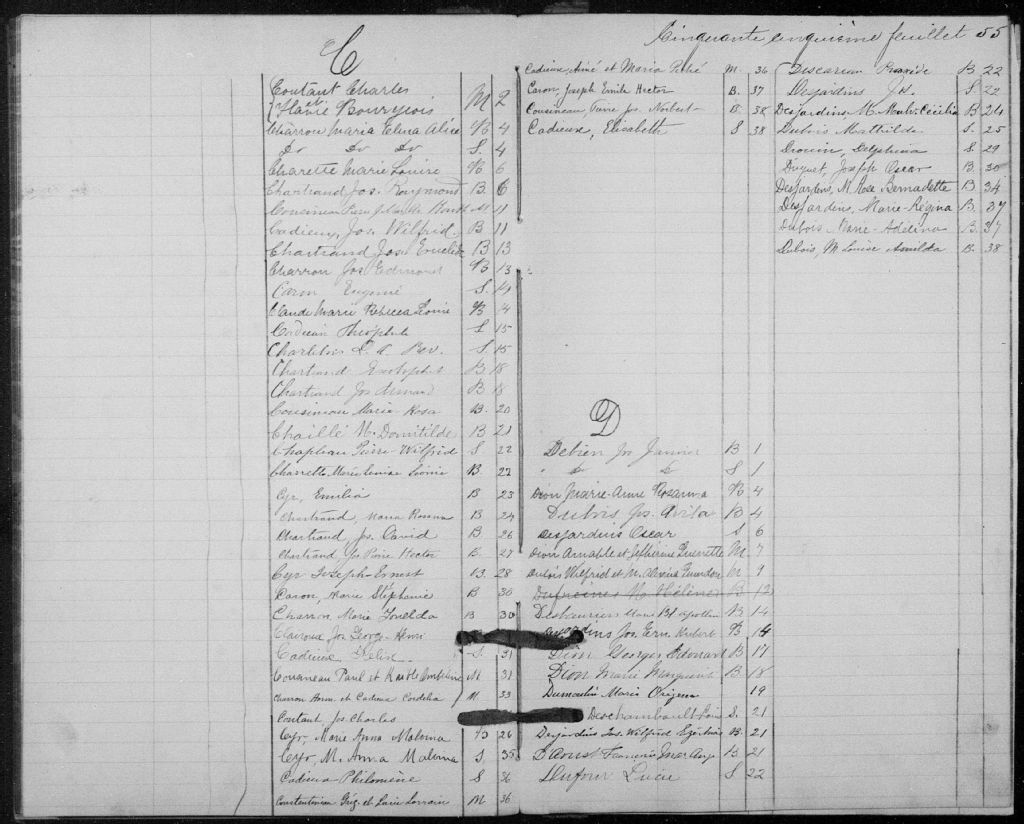 C
Coutant Charles
Flavie Bourgeois M 2
Charron Maria Elina Alice B 4
Do Do Do S. 4
Charette Marie Louise B 6
Chartrand Jos. Raymond B. 6
Cousineau M 11
Cadieux, Jos Wilfrid B 11
Chartrand José Euclide B 13
Charron Jos Edmond B 13
Caron Eugenie S. 14
Claude Marie Rebecca Louise B 14
Théophile S 15
Charlebois Rev. S. 15
Chartrand B 18
Chartrand Jos Armand B 18
Cousineau Marie-Rosa B. 20
Chaillé M. Domitilde B 21
Chapleau Pierre-Wilfrid S 22
Charrette Marie Louise Léonie B. 22
Cyr, Emilia B 23
Chartrand, Maria Rosanna B 24
Chartrand, Jos. David B. 26
Chartrand, Jos Pierre Hector B. 27
Cyr Joseph-Ernest B. 28
Caron, Marie Stéphanie B 30
Charron Marie Imelda B 30
Jos George Henri
Cadieux Délia S. 31
Cousineau Paul et M 31
Charron Arm. et Cadieux Cordelia M. 33
Coutant Jos Charles
Cyr, Marie Anna Malvina B 26
Cyr, M. Anna Malvina S. 35
Cadieux Philomène S 36
Constantineau Grég. et Lorrain M 36
Cinquante cinquième feuillet 55
Cadieux, Aimé et Maria M. 36
Caron, Joseph Emile Hector B. 37
Cousineau, Pierre Jos. Norbert B. 38
Cadieux, Elisabeth S 38
D
Debien Jos Janvier B 1
" " " S 1
Dion Marie-Anne Rosanna B 4
Dubois Jos. Avila B 4
Desjardins Oscar S 6
Dion Amable et Guerrette M 7
Dubois Wilfrid et M. M 9
M. Hélène B 12
Marie B 14
Jos. Ern. B 14
Dion Georges Edouard B 17
Dion Marie Marguerite B 18
Dumoulin Marie 19
Deschambault S. 21
Desjardins Jos. Wilfrid B. 21
D'Aoust François B 21
Dufour Lucie S 22
B 22
Desjardins Jos. S. 22
Desjardins M. Cécilia B 24
Dubois Mathilde S. 25
Drouin, Delphina S 29
Duquet, Joseph Oscar B. 30
Desjardins, M. Rose Bernadette B 34
Desjardins, Marie-Régina B. 37
Dubois Marie-Adélina B. 37
Dubois, M. Louise B. 38